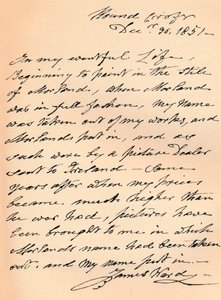 Round Croft
Decr. 30, 1851.
In my eventful Life,
Beginning to paint in the stile
of Morland, when Morland
was in full fashon, my Name
was taken out of my works, and
Morlands put in, and as
such were by a picture Dealer
sent to Ireland — Some
years after when my price
became much higher than
he was had, pictures have
been brought to me in which
Morlands name had been taken
out, and my name put in. —
James Ward.